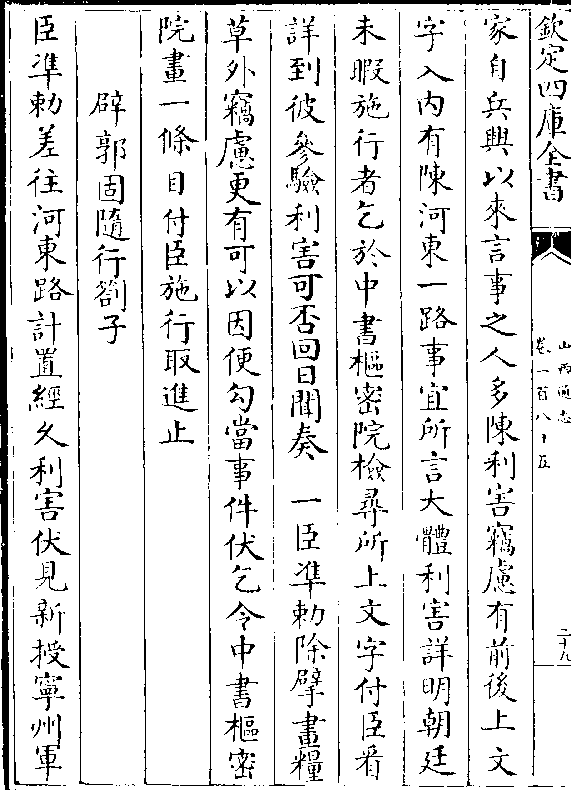 欽定四庫全書
山西通志
卷一百八十五
二十九
家自兵興以來言事之人多陳利害竊慮有前後上文
字入內有陳河東一路事宜所言大體利害詳明朝廷
未暇施行者乞於中書樞密院檢尋所上文字付臣看
詳到彼參驗利害可否回日聞奏　一臣準勅除擘畫糧
草外竊慮更有可以因便勾當事件伏乞令中書樞密
院畫一條目付臣施行取進止
辟郭固隨行劄子
臣準勅差往河東路計置經久利害伏見新授寧州軍